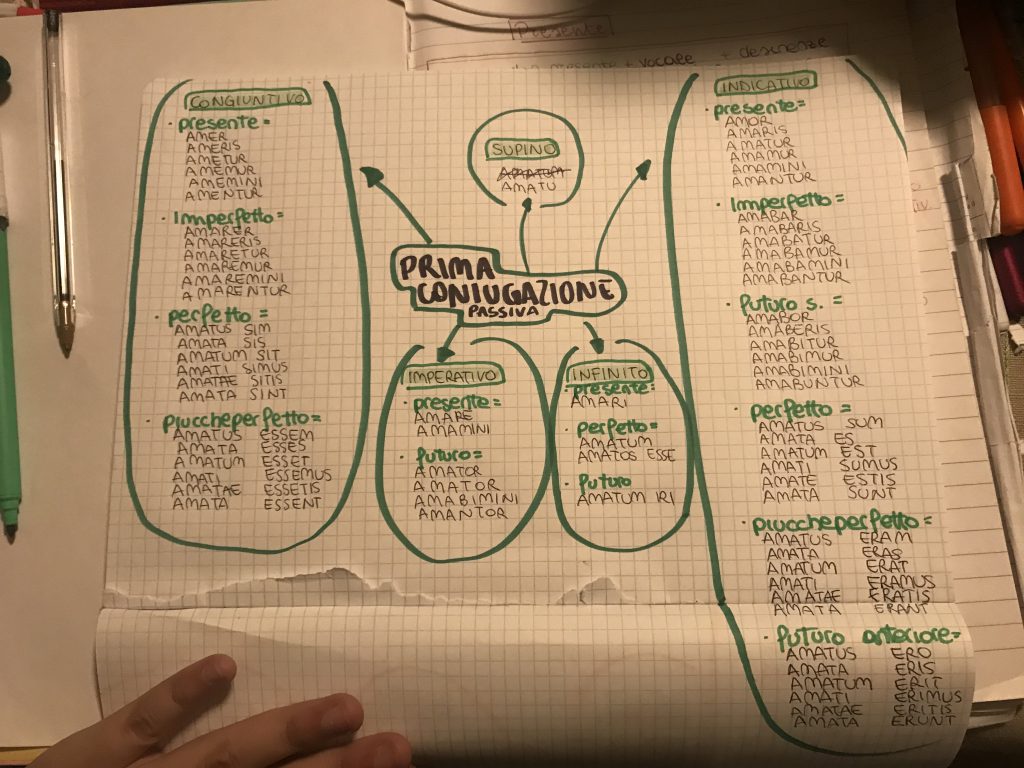 Presente
+ vocale + desinenze
PRIMA
CONIUGAZIONE
PASSIVA
CONGIUNTIVO
· presente=
AMER
AMERIS
AMETUR
AMEMUR
AMEMINI
AMENTUR
· Imperfetto=
AMARER
AMARERIS
AMARETUR
AMAREMUR
AMAREMINI
AMARENTUR
· perfetto=
AMATUS SIM
AMATA SIS
AMATUM SIT
AMATI SIMUS
AMATAE SITIS
AMATA SINT
· piuccheperfetto=
AMATUS ESSEM
AMATA ESSES
AMATUM ESSET
AMATI ESSEMUS
AMATAE ESSETIS
AMATA ESSENT
SUPINO
AMATUM
AMATU
IMPERATIVO
· presente=
AMARE
AMAMINI
· futuro=
AMATOR
AMATOR
AMABIMINI
AMANTOR
INFINITO
· presente:
AMARI
· perfetto=
AMATUM
AMATOS ESSE
· futuro
AMATUM IRI
INDICATIVO
· presente=
AMOR
AMARIS
AMATUR
AMAMUR
AMAMINI
AMANTUR
· Imperfetto=
AMABAR
AMABARIS
AMABATUR
AMABAMUR
AMABAMINI
AMABANTUR
· futuro s. =
AMABOR
AMABERIS
AMABITUR
AMABIMUR
AMABIMINI
AMABUNTUR
· perfetto =
AMATUS SUM
AMATA ES
AMATUM EST
AMATI SUMUS
AMATE ESTIS
AMATA SUNT
· piuccheperfetto=
AMATUS ERAM
AMATA ERAS
AMATUM ERAT
AMATI ERAMUS
AMATAE ERATIS
AMATA ERANT
· futuro anteriore=
AMATUS ERO
AMATA ERIS
AMATUM ERIT
AMATI ERIMUS
AMATAE ERITIS
AMATA ERUNT